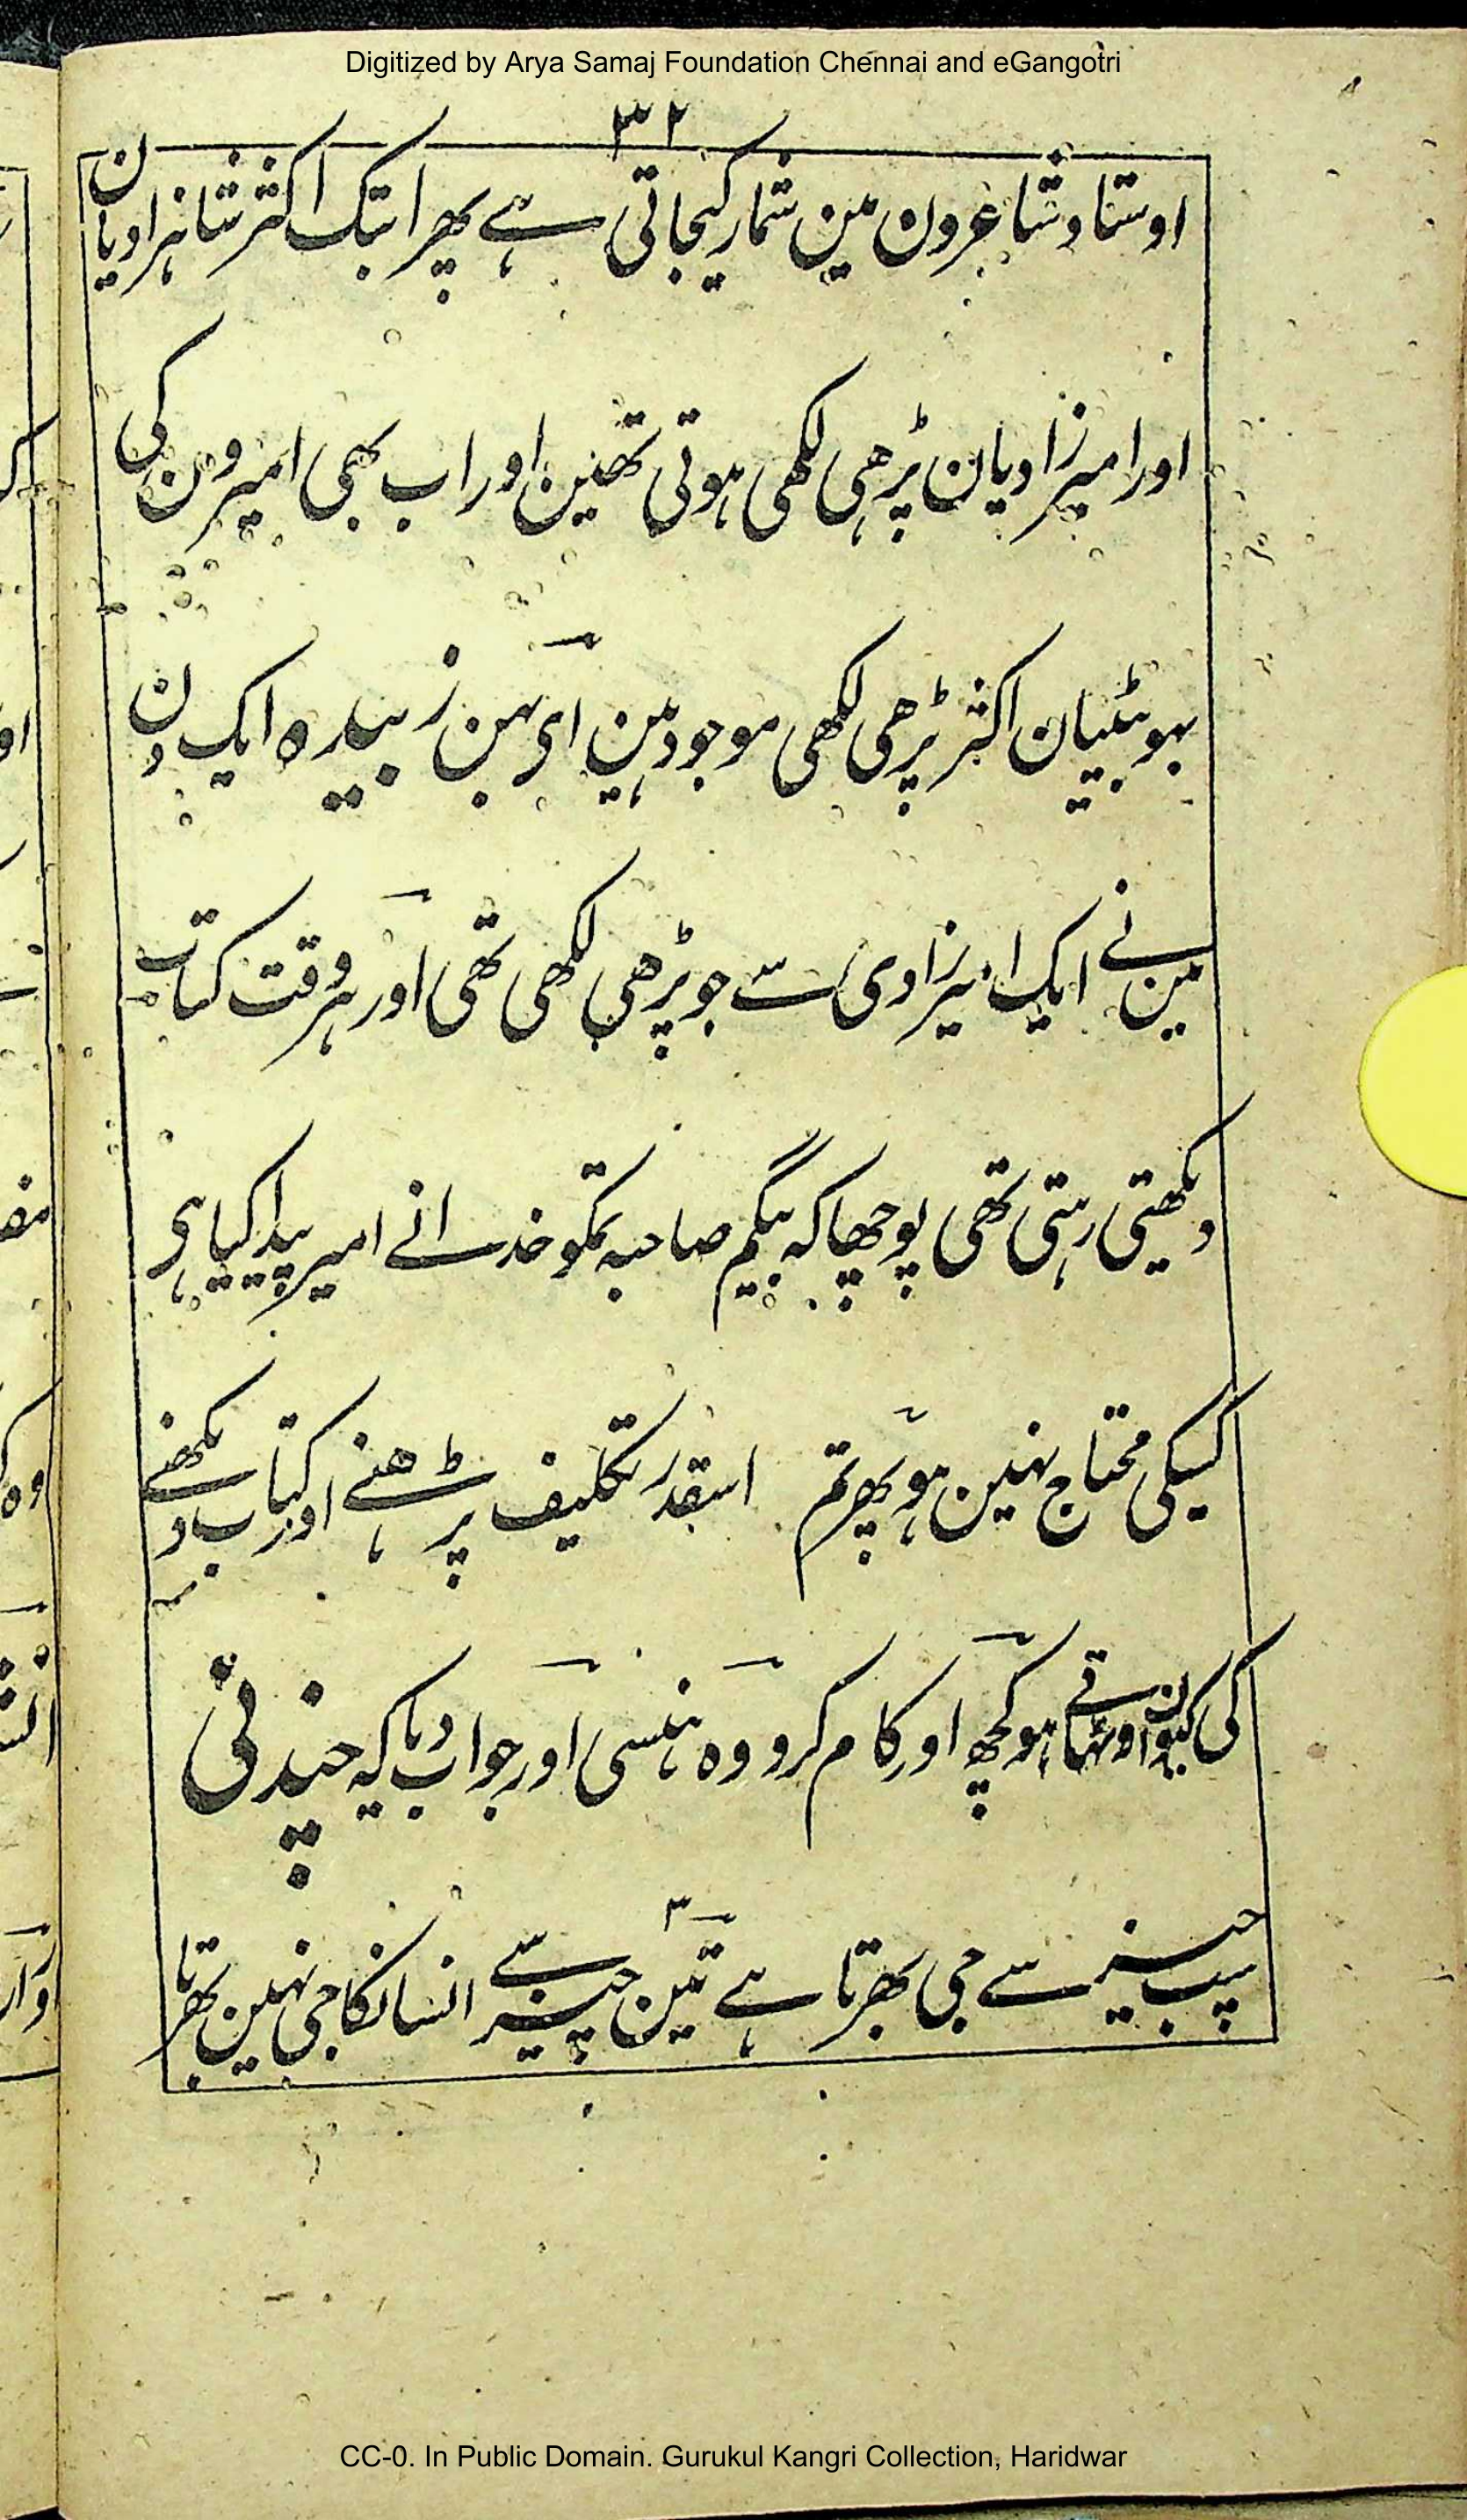 Digitized by Arya Samaj Foundation Chennai and eGangotri
۳۲
اوستاد شاعرون مین شمار کیجاتی ہے پھر ابتک اکثر شاہزادیان
اور امیرزادیان پڑھی لکھی ہوتی تھین اور اب بھی امیرون کی
بہو بیٹیان اکثر پڑھی لکھی موجود ہین ای بہن زبیدہ ایک دن
مین نے ایک امیرزادی سے جو پڑھی لکھی تھی اور ہر وقت کتاب
دیکھتی رہتی تھی پوچھا کہ بیگم صاحبہ تمکو خدا نے امیر پیدا کیا ہی
کسیکی محتاج نہین ہو پھر تم اسقدر تکلیف پڑہنے اور کتاب دیکھنے
کی کیون اوٹھاتی ہو کچھ اور کام کرو وہ ہنسی اور جواب دیا کہ چندنی
سب چیز سے جی بھرتا ہے تین چیز سے انسانکا جی نہین بھرتا
۳
CC-0. In Public Domain. Gurukul Kangri Collection, Haridwar